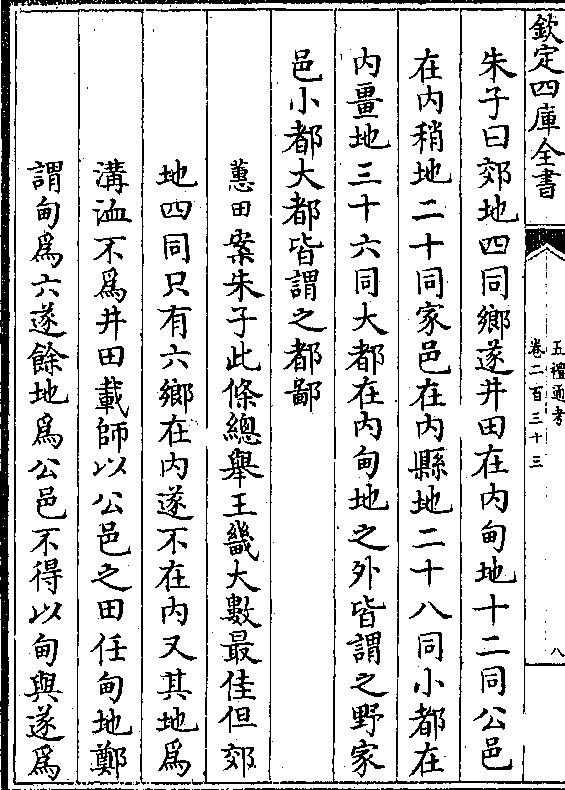 欽定四庫全書
五禮通考
卷二百三十三
八
朱子曰郊地四同鄉遂井田在内甸地十二同公邑
在内稍地二十同家邑在内縣地二十八同小都在
内畺地三十六同大都在内甸地之外皆謂之野家
邑小都大都皆謂之都鄙
蕙田案朱子此條總舉王畿大數最佳但郊
地四同只有六鄉在内遂不在内又其地爲
溝洫不爲井田載師以公邑之田任甸地鄭
謂甸爲六遂餘地爲公邑不得以甸與遂爲